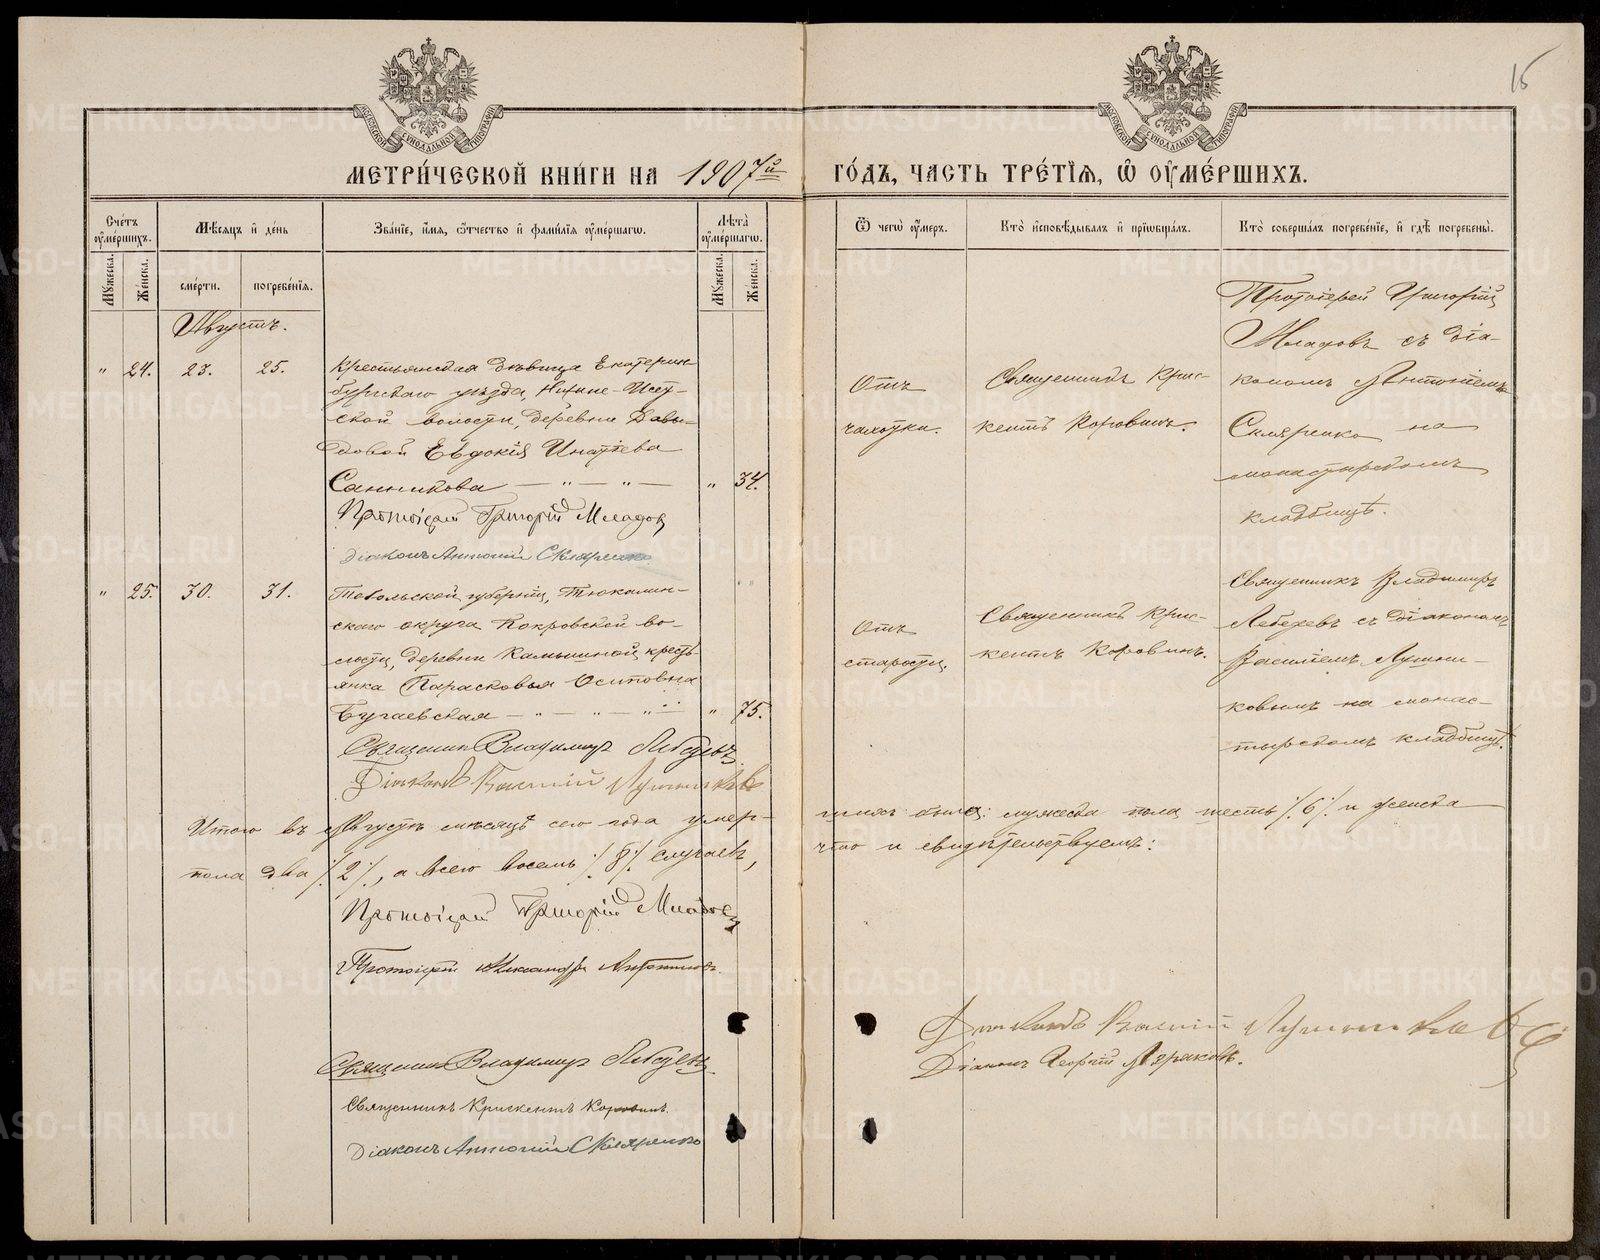 15
МЕТРИ́ЧЕСКОЙ КНИ́ГИ НА 1907й ГО́ДЪ, ЧАСТЬ ТРЕ́ТІѦ, Ѿ ОУМЕ́РШИХЪ.
Сче́тъ оуме́ршихъ.
Мꙋжеска.
Же́нска.
Мѣ́сяцъ и де́нь
сме́рти.
погребе́нїѧ.
Зва́нїе, и́мѧ, ѻ́тчество и фами́лїѧ оуме́ршагѡ.
Лѣ́та оуме́ршагѡ.
Мꙋжеска.
Же́нска.
Ѿ чегѡ̀ оу́меръ.
Кто̀ исповѣ́дывалъ и прїѡбща́лъ.
Кто̀ соверша́лъ погребе́нїе, и гдѣ̀ погребены̀.
Августъ.
" 24. 23. 25.
Крестьянская дѣвица Екатерин-
бургскаго уѣзда, Нижне-Исет-
ской волости, деревни Давы-
довой Евдокія Игнатіева
Санникова — " — " — " 34.
Протоіерей Григорій Младов
Діаконъ Антоній Скляренко
Отъ
чахотки.
Священникъ Крис-
кентъ Коровинъ.
Протоіерей Григорій
Младовъ съ діа-
кономъ Антоніемъ
Скляренко на
монастырскомъ
кладбищѣ.
" 25. 30. 31.
Тобольской губерніи, Тюкалин-
скаго округа Покровской во-
лости, деревни Камышной кресть-
янка Парасковья Осиповна
Бугаевская — " — " — " " 75.
Священник Владимиръ Лебедевъ
Діаконъ Василій Лушниковъ
Отъ
старости.
Священникъ Крис-
кентъ Коровинъ.
Священникъ Владимиръ
Лебедевъ съ діакономъ
Василіемъ Лушни-
ковымъ на монас-
тырскомъ кладбищѣ.
Итого въ Августѣ мѣсяцѣ сего года умер-
шихъ было: мужеска пола шесть /6/ и женска
пола два /2/, а всего восемь /8/ случаевъ,
что и свидѣтельствуемъ:
Протоіерей Григорій Младовъ
Протоіерей Александръ
Священник Владимиръ Лебедевъ
Священникъ Крискентъ Коровинъ.
Діаконъ Антоній Скляренко
Діаконъ Василій Лушниковъ
Діаконъ Георгій
METRIKI.GASO-URAL.RU